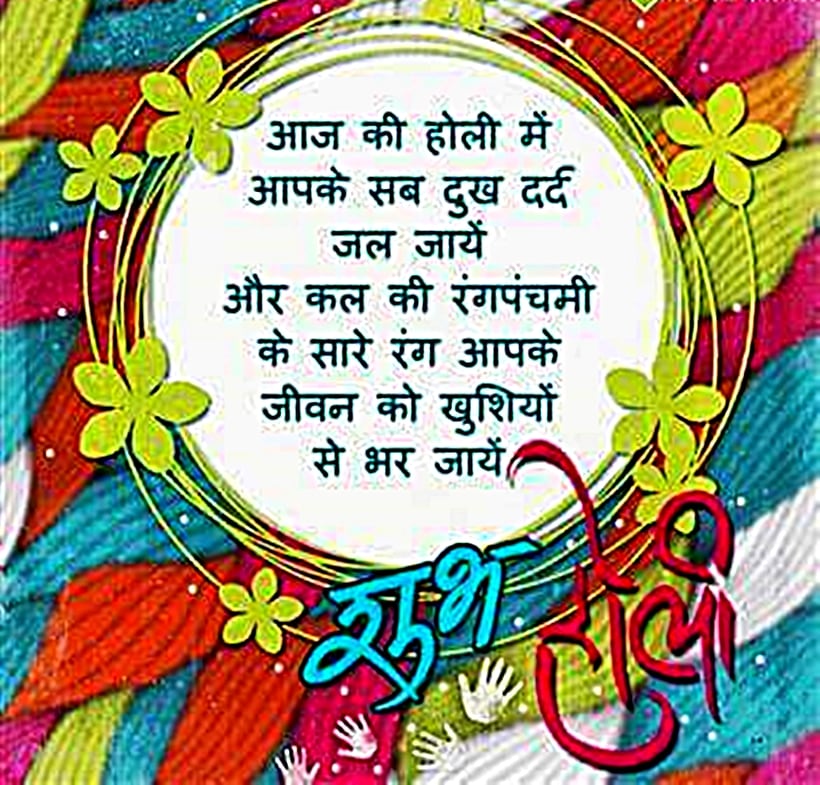 आज की होली में
आपके सब दुख दर्द
जल जायें
और कल की रंगपंचमी
के सारे रंग आपके
जीवन को खुशियों
से भर जायें
शुभ होली